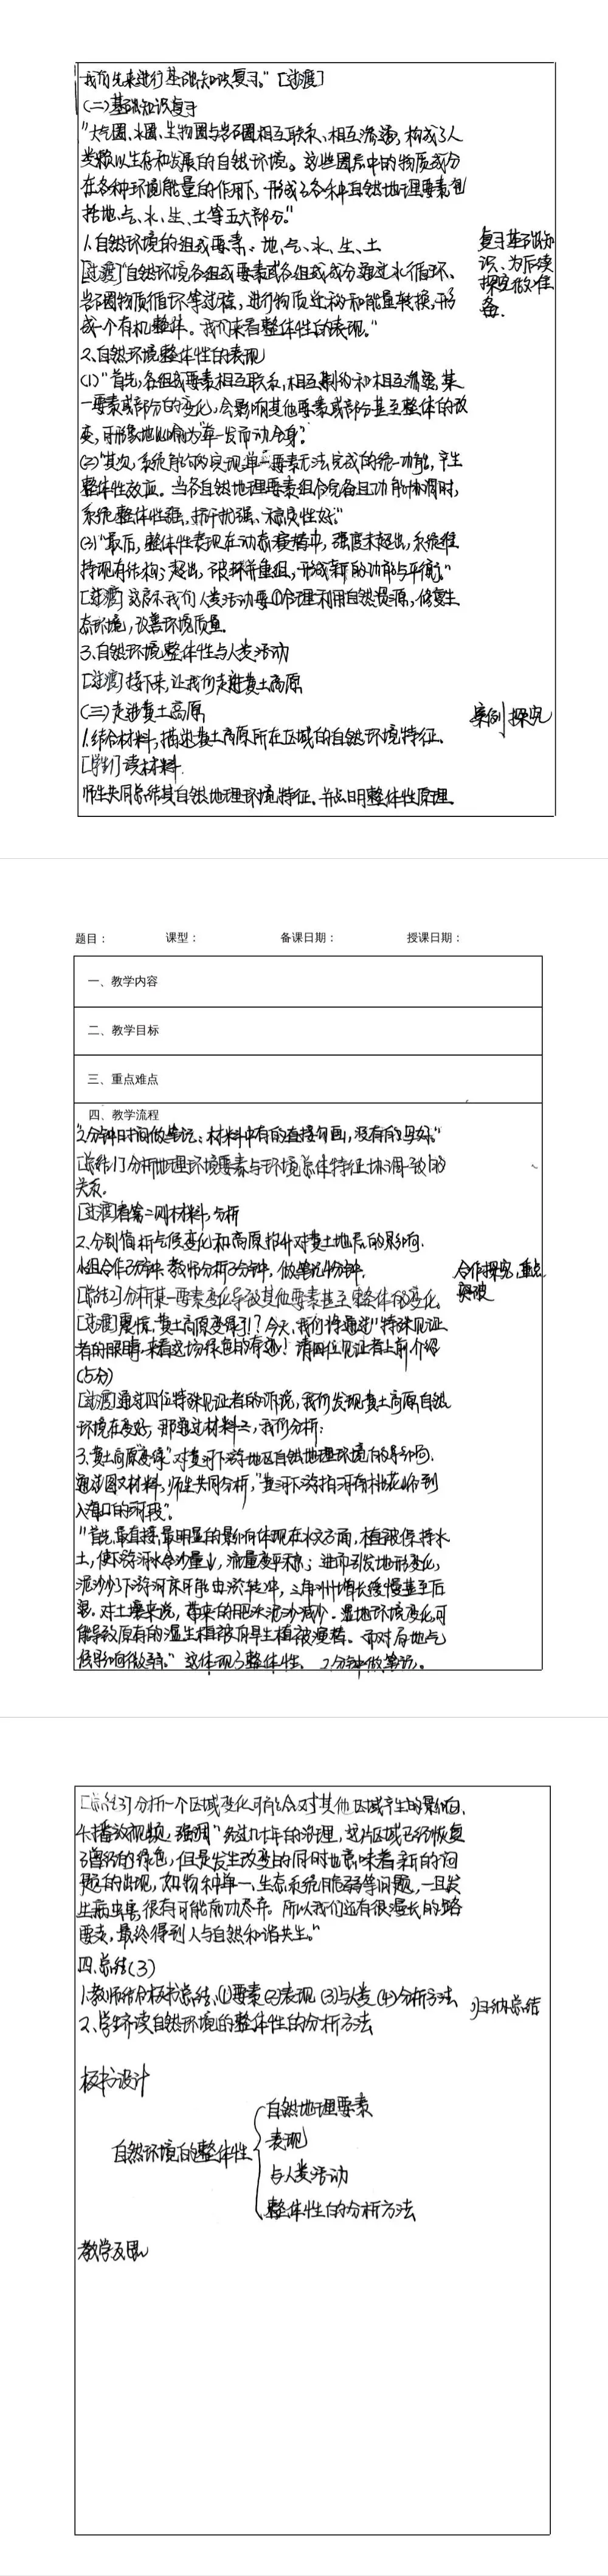 我们先来进行基础知识复习。"[过渡]
(二)基础知识复习
"大气圈、水圈、生物圈与岩石圈相互联系、相互渗透,构成了人
类赖以生存和发展的自然环境。这些圈层中的物质成分
在各种环境能量的作用下,形成了各种自然地理要素包
括地、气、水、生、土等五大部分。"
1.自然环境的组成要素:地、气、水、生、土
复习基础知
识、为后续
探究做准
备.
[过渡]"自然环境各组成要素或各组成成分通过水循环、
岩石圈物质循环等过程,进行物质迁移和能量转换,形
成一个有机整体。我们来看整体性的表现。"
2.自然环境整体性的表现
(1)"首先,各组成要素相互联系,相互制约和相互渗透,某
一要素或部分的变化,会影响其他要素或部分甚至整体的改
变,可形象地比喻为"牵一发而动全身"。
(2)"其次,系统能够实现单一要素无法完成的统一功能,产生
整体性效应。当各自然地理要素组合完备且功能协调时,
系统整体性强,抗干扰强、稳定性好。"
(3)"最后,整体性表现在动态演替中,强度未超出,系统维
持现有结构;超出,破坏并重组,形成新的功能与平衡。"
[过渡]这启示我们人类活动要①合理利用自然资源,修复生
态环境,改善环境质量.
3.自然环境整体性与人类活动
[过渡]接下来,让我们走进黄土高原
(三)走进黄土高原
案例探究
1.结合材料,描述黄土高原所在区域的自然环境特征.
[学生]读材料.
师生共同总结其自然地理环境特征.并点明整体性原理.
题目: 课型: 备课日期: 授课日期:
一、教学内容
二、教学目标
三、重点难点
四、教学流程
"2分钟时间做笔记、材料中有的直接勾画,没有的写好。"
[总结1]分析地理环境要素与环境总体特征协调一致的
关系。
[过渡]看第二则材料,分析
2.分别值析气候变化和高原抬升对黄土地层的影响.
小组合作3分钟.教师分析3分钟,做笔记4分钟.
合作探究,重点
突破
[总结2]分析某一要素变化导致其他要素甚至整体的变化。
[过渡]震惊,黄土高原变绿了!?今天,我们将通过"特殊见证
者的眼睛,来看这场绿色的奇迹!请四位见证者上前介绍
(5分)
[过渡]通过四位特殊见证者的诉说,我们发现黄土高原自然
环境在变好,那通过材料三,我们分析:
3.黄土高原"变绿"对黄河下游地区自然地理环境的影响.
通过图文材料,师生共同分析,"黄河下游指河南桃花峪到
入海口的河段"。
"首先,最直接、最明显的影响体现在水文方面,植被保持水
土,使下游河水含沙量↓,流量变平稳;进而引发地形变化,
泥沙少了下游河床可能由淤转冲,三角洲增长缓慢甚至后
退。对土壤来说,带来的肥沃泥沙减少.湿地环境变化可
能导致原有的湿生植被向旱生植被演替。而对局地气
候影响微弱。"这体现了整体性. 2分钟做笔记。
[总结3]分析一个区域变化可能会对其他区域产生的影响.
4.播放视频,强调"经过几十年的治理,这片区域已经恢复
了曾经的绿色,但是发生改变的同时也意味着新的问
题的出现,如物种单一、生态系统脆弱等问题,一旦发
生病虫害很有可能前功尽弃。所以我们还有很漫长的路
要走,最终得到人与自然和谐共生。"
四.总结(3)
1.教师结合板书总结、(1)要素(2)表现(3)与人类(4)分析方法
归纳总结
2、学生齐读自然环境的整体性的分析方法
板书设计
自然环境的整体性
自然地理要素
表现
与人类活动
整体性的分析方法
教学反思